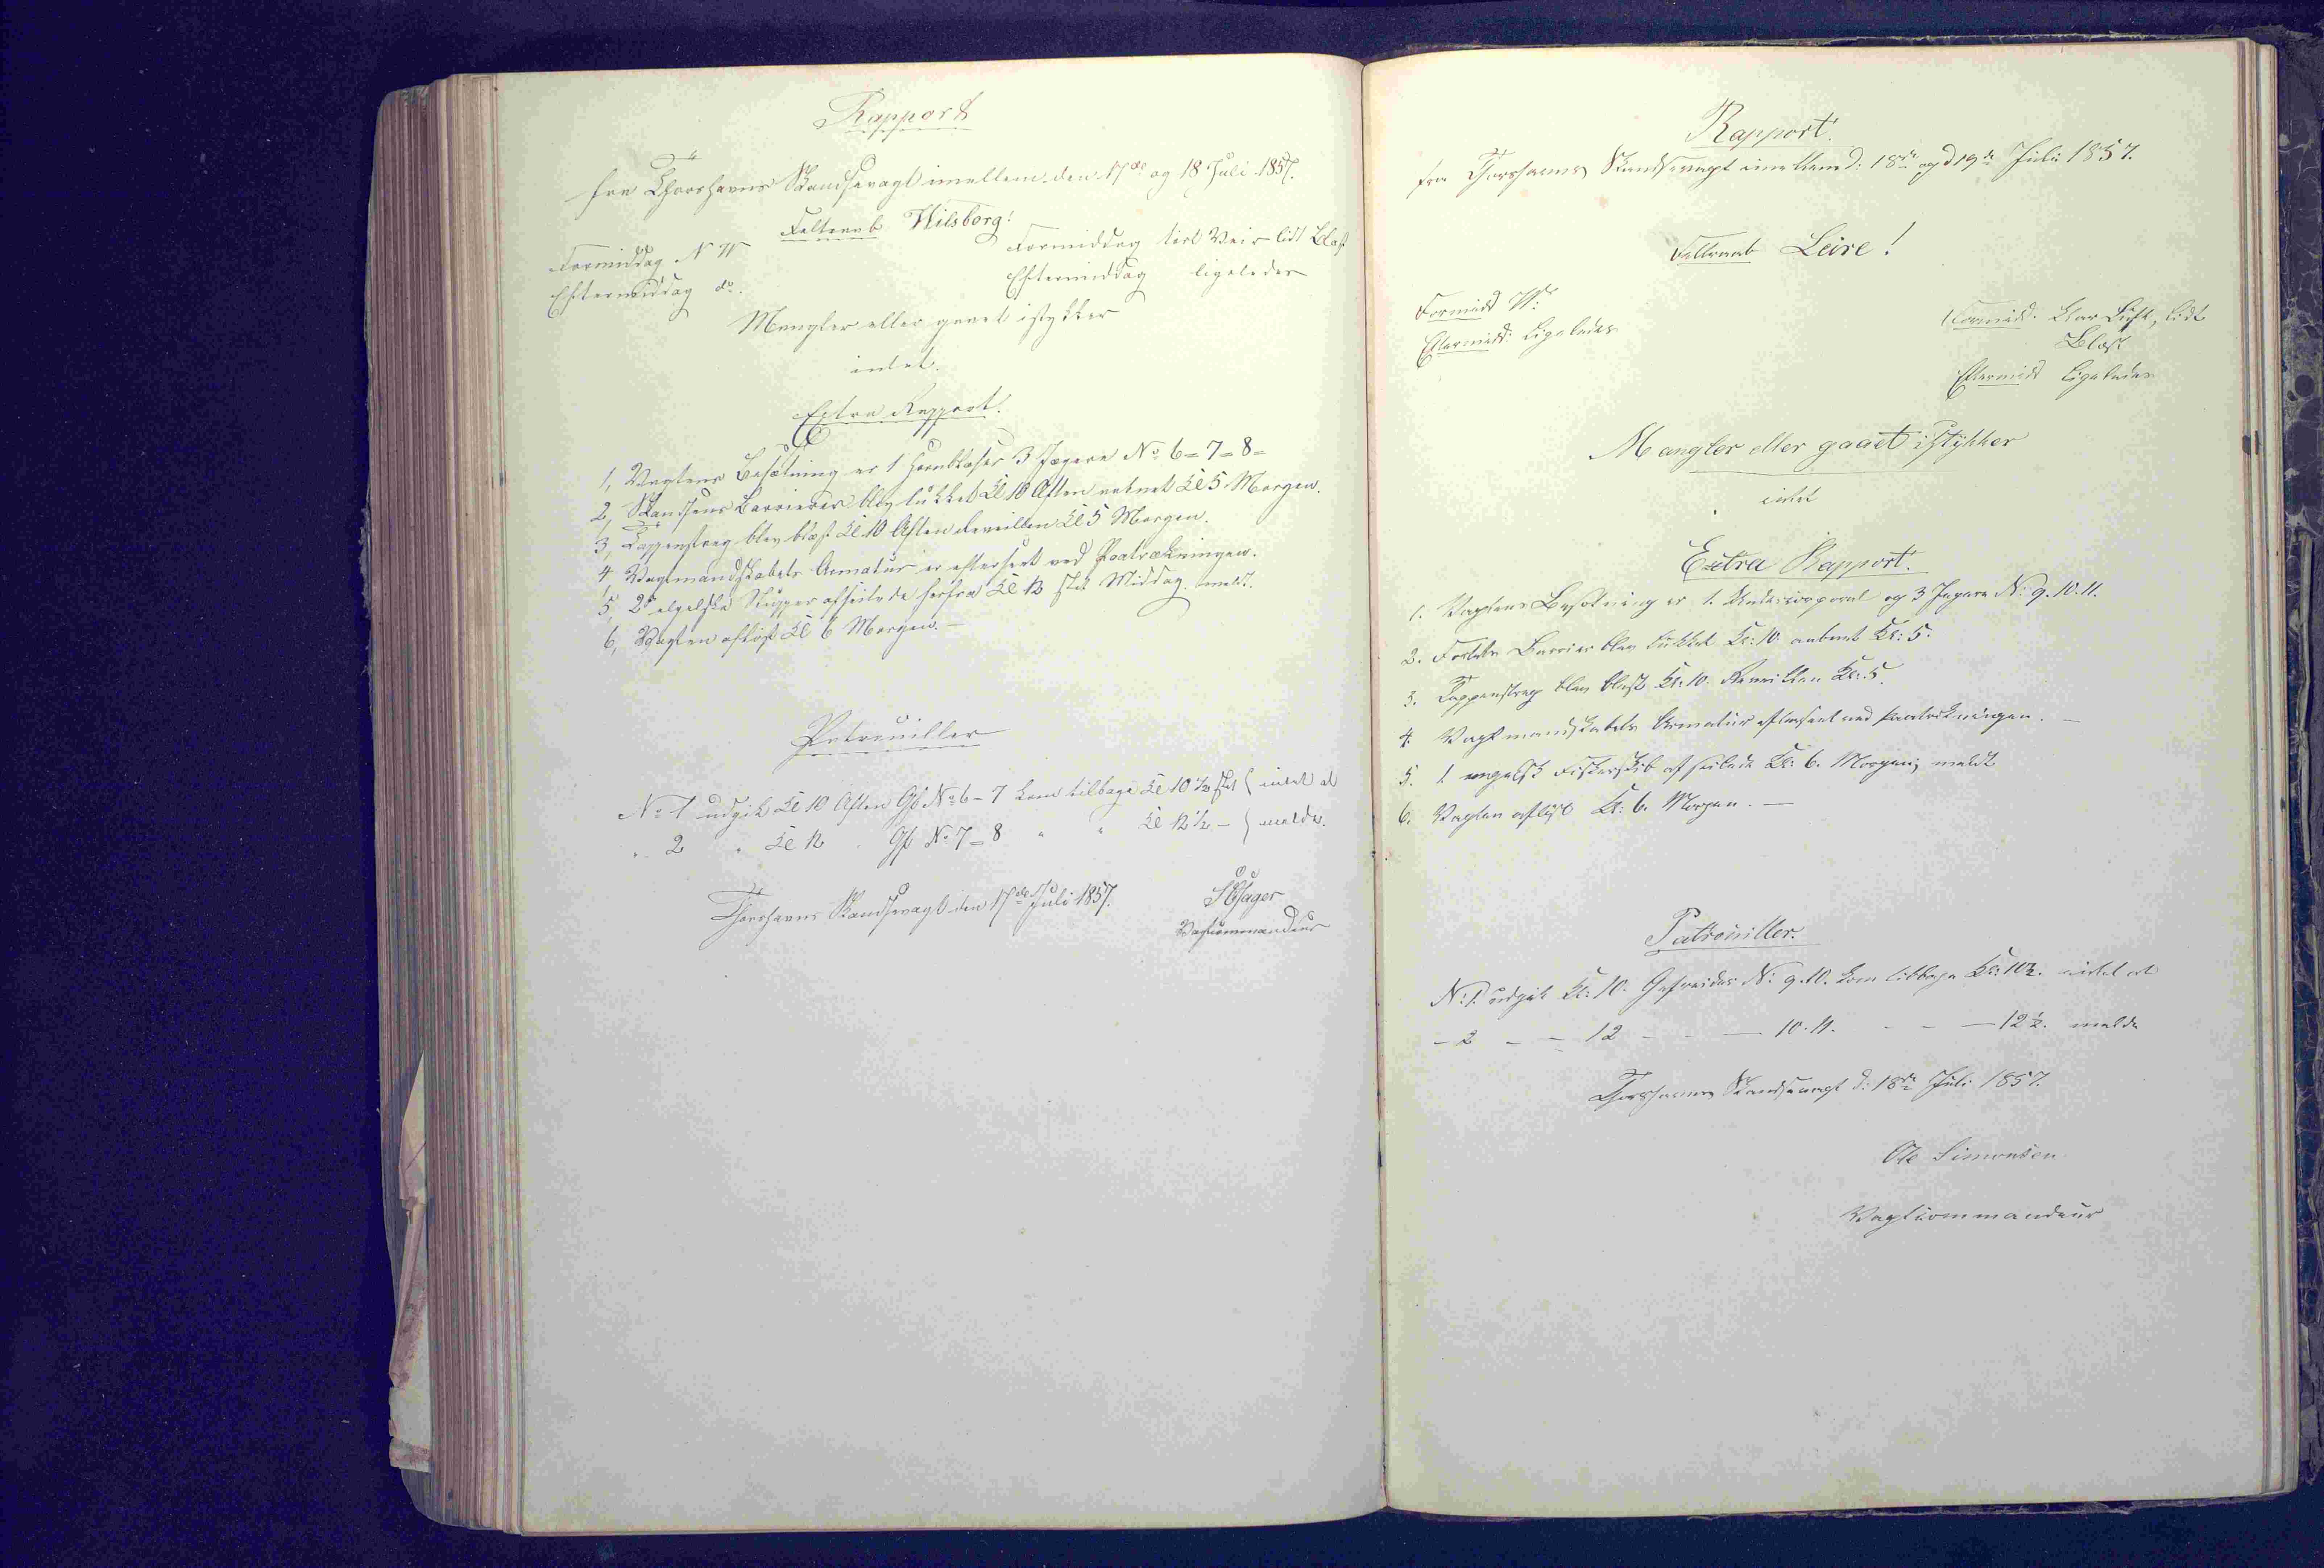 Rapport
fra Thorshavns Skandsevagt imellem den 17de og 18 Juli 1857.
Feltraab Wilsborg!
Formiddag N W
Eftermiddag do.
Formiddag tirt Veir lidt Blæst
Eftermiddag ligeledes
Mangler eller gaaet istykker
intet.
Extra Rapport.
1, Vagtens Besætning er 1 Hornblæser 3 Jægere No 6=7=8=
2, Skandsens Barrierer blev lukket Kl 10 Aften aabnet Kl 5 Morgen.
3, Tappenstreg blev blæst Kl 10 Aften Reveillen Kl 5 Morgen.
4 Vagtmandskabets Armatur er efterseet ved Paatrækningen.
5, 2 engelske Slupper afseilede herfra Kl 12 Slet Middag meldt.
6, Vagten afløst Kl 6 Morgen. —
Patrouiller
No 1 udgik Kl 10 Aften Gf No 6=7 kom tilbage Kl 10 1/2 Slet } intet at
" 2 " Kl 12 " Gf No 7=8 " " Kl 12 1/2 — } melde.
Thorshavns Skandsevagt den 17de Juli 1857.
Hager
Vagtcommandeur
Rapport.
fra Thorshavns Skandsevagt imellem d: 18de og d 19de Juli 1857.
Feltraab Leire!
Formidd W.
Eftermidd: Ligeledes
Formidd: Klar Luft, lidt
Blæst
Eftermidd Ligeledes
Mangler eller gaaet istykker
intet
Extra Rapport.
1. Vagtens Besætning er 1. Undercorporal og 3 Jægere No: 9. 10. 11.
2. Fortets Barrier blev lukket Kl: 10. aabnet Kl: 5.
3. Tappenstreg blev blæst Kl: 10. Reveillen Kl: 5.
4. Vagtmandskabets Armatur efterseet ved Paatrækningen. —
5. 1 engelsk Fiskerskib afseilede Kl: 6. Morgen; meldt
6. Vagten afløst Kl: 6. Morgen. —
Patrouiller.
No: 1. udgik Kl: 10. Gefreider No: 9. 10. kom tilbage Kl: 10 1/2. intet at
— 2 — — 12 — — — 10. 11. — — — 12 1/2. melde
Thorshavns Skandsevagt d: 18de Juli 1857.
Ole Simonsen
Vagtcommandeur